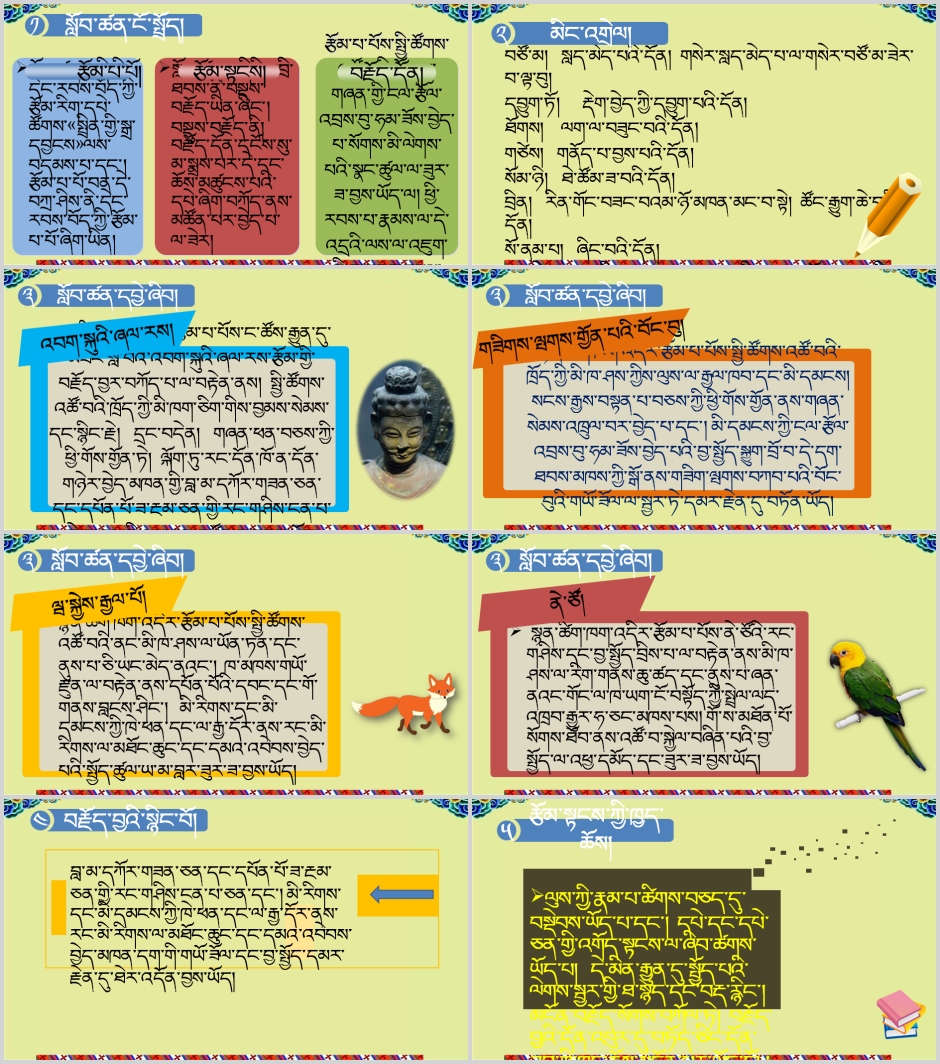 ༡ སློབ་ཚན་ངོ་སྤྲོད།
རྩོམ་པི་པོ།
དེང་རབས་བོད་ཀྱི་
རྩོམ་རིག་དཔེ་
ཚོགས་《སྤྲིན་གྱི་སྒྲ་
དབྱངས》ལས་
བདམས་པ་དང་།
རྩོམ་པ་པོ་བན་དེ་
བཀྲ་ཤིས་ནི་དེང་
རབས་བོད་ཀྱི་རྩོམ་
པ་པོ་ཞིག་ཡིན།
རྩོམ་སྟངས།
ཐབས་ནི་བསྡུས་
བརྗོད་ཡིན་ཞིང་།
བསྡུས་བརྗོད་ནི།
བརྗོད་དོན་དངོས་སུ་
མ་སྨྲས་པར་དེ་དང་
ཆོས་མཚུངས་པའི་
དཔེ་ཞིག་བཀོད་ནས་
མཚོན་པར་བྱེད་པ་
ལ་ཟེར།
རྩོམ་པ་པོས་སྤྱི་ཚོགས་
བརྗོད་དོན།
གཞན་གྱི་ངལ་རྩོལ་
འབྲས་བུ་ཧམ་ཟོས་བྱེད་
པ་སོགས་མི་ལེགས་
པའི་སྣང་ཚུལ་ལ་ཟུར་
ཟ་བྱས་ཡོད་ལ། ཕྱི་
རབས་པ་རྣམས་ལ་དེ་
འདྲའི་ལས་ལ་འཇུག་
༢ མིང་འགྲེལ།
བཙོ་མ། སླད་མེད་པའི་དོན། གསེར་སླད་མེད་པ་ལ་གསེར་བཙོ་མ་ཟེར་
བ་ལྟ་བུ།
དབྱུག་ཏོ། རྡེག་བྱེད་ཀྱི་དབྱུག་པའི་དོན།
ཐོགས། ལག་ལ་བཟུང་བའི་དོན།
གཙེས། གནོད་པ་བྱས་པའི་དོན།
སོམ་ཉི། ཐེ་ཚོམ་ཟ་བའི་དོན།
བྲིན། རིན་གོང་བཟང་བའམ་ཉོ་མཁན་མང་བ་སྟེ། ཚོང་རྒྱུག་ཆེ་བའི་
དོན།
སོ་ནམ་པ། ཞིང་བའི་དོན།
༣ སློབ་ཚན་དབྱེ་ཞིབ།
འབག་སྐུའི་ཞལ་རས།
བརྗོད་བྱར་བཀོད་པ་ལ་བརྟེན་ནས། སྤྱི་ཚོགས་
འཚོ་བའི་ཁྲོད་ཀྱི་མི་ཁག་ཅིག་གིས་བྱམས་སེམས་
དང་སྙིང་རྗེ། དྲང་བདེན། གཞན་ཕན་བཅས་ཀྱི་
ཕྱི་གོས་གྱོན་ཏེ། ལྐོག་ཏུ་རང་དོན་ཁོ་ན་དོན་
གཉེར་བྱེད་མཁན་གྱི་བླ་མ་དཀོར་གཟན་ཅན་
དང་དཔོན་པོ་ཟ་རྔམ་ཅན་གྱི་རང་གཤིས་ངན་པ་
༣ སློབ་ཚན་དབྱེ་ཞིབ།
གཟིགས་ལྤགས་གྱོན་པའི་བོང་བུ།
ཁྲོད་ཀྱི་མི་ཁ་ཤས་ཀྱིས་ལུས་ལ་རྒྱལ་ཁབ་དང་མི་དམངས།
སངས་རྒྱས་བསྟན་པ་བཅས་ཀྱི་ཕྱི་གོས་གྱོན་ནས་གཞན་
སེམས་འཁྲུལ་བར་བྱེད་པ་དང་། མི་དམངས་ཀྱི་ངལ་རྩོལ་
འབྲས་བུ་ཧམ་ཟོས་བྱེད་པའི་བྱ་སྤྱོད་སྐྱུག་བྲོ་བ་དེ་དག་
ཐབས་མཁས་ཀྱི་སྒོ་ནས་གཟིག་ལྤགས་བཀབ་པའི་བོང་
བུའི་གཡོ་ཟོལ་ལ་སྦྱར་ཏེ་དམར་རྗེན་དུ་བཏོན་ཡོད།
༣ སློབ་ཚན་དབྱེ་ཞིབ།
ལྦ་སྐྱེས་རྒྱལ་པོ།
སྙན་ཚིག་ཁག་འདིར་རྩོམ་པ་པོས་སྤྱི་ཚོགས་
འཚོ་བའི་ནང་མི་ཁ་ཤས་ལ་ཡོན་ཏན་དང་
ནུས་པ་ཅི་ཡང་མེད་ནའང་། ཁ་མཁས་གཡོ་
རྫུན་ལ་བརྟེན་ནས་དཔོན་པོའི་དབང་དང་གོ་
གནས་བླངས་ཤིང་། མི་རིགས་དང་མི་
དམངས་ཀྱི་ཁེ་ཕན་དང་ལ་རྒྱ་དོར་ནས་རང་མི་
རིགས་ལ་མཐོང་ཆུང་དང་དམའ་འབེབས་བྱེད་
པའི་སྤྱོད་ཚུལ་ཡ་མ་བླར་ཟུར་ཟ་བྱས་ཡོད།
༣ སློབ་ཚན་དབྱེ་ཞིབ།
ནེ་ཙོ།
སྙན་ཚིག་ཁག་འདིར་རྩོམ་པ་པོས་ནེ་ཙོའི་རང་
གཤིས་དང་བྱ་སྤྱོད་བྲིས་པ་ལ་བརྟེན་ནས་མི་ཁ་
ཤས་ལ་རིག་གནས་ཆུ་ཚད་དང་ནུས་པ་ཞན་
ནའང་གོང་ལ་ཁ་ཡག་ངོ་བསྟོད་ཀྱི་སྤྲེལ་ལད་
འཁྲབ་རྒྱུར་ཧ་ཅང་མཁས་པས། གོ་ས་མཐོན་པོ་
སོགས་ཐོབ་ནས་འཚོ་བ་སྐྱེལ་བཞིན་པའི་བྱ་
སྤྱོད་ལ་འཕྱ་དམོད་དང་ཟུར་ཟ་བྱས་ཡོད།
༤ བརྗོད་བྱའི་སྙིང་པོ།
བླ་མ་དཀོར་གཟན་ཅན་དང་དཔོན་པོ་ཟ་རྔམ་
ཅན་གྱི་རང་གཤིས་ངན་པ་ཅན་དང་། མི་རིགས་
དང་མི་དམངས་ཀྱི་ཁེ་ཕན་དང་ལ་རྒྱ་དོར་ནས་
རང་མི་རིགས་ལ་མཐོང་ཆུང་དང་དམའ་འབེབས་
བྱེད་མཁན་དག་གི་གཡོ་ཟོལ་དང་བྱ་སྤྱོད་དམར་
རྗེན་དུ་ཐེར་འདོན་བྱས་ཡོད།
༥ རྩོམ་སྟངས་ཀྱི་ཁྱད་
ཆོས།
ལུས་ཀྱི་རྣམ་པ་ཚིགས་བཅད་དུ་
བསྡེབས་ཡོད་པ་དང་། དཔེ་དང་དཔེ་
ཅན་གྱི་འགྲོད་སྟངས་ལ་ཞིབ་ཚགས་
ཡོད་པ། ད་མིན་རྒྱུན་དུ་སྤྱོད་པའི་
ལེགས་སྦྱར་གྱི་ཐ་སྙད་དང་བརྡ་རྙིང་།